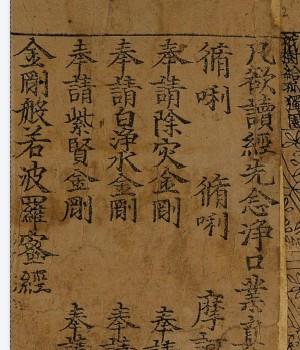 凡欲讀經先念淨口業真
脩唎 脩唎 摩
奉請除灾金剛 奉
奉請白淨水金剛 奉
奉請紫賢金剛 奉請
金剛般若波羅蜜經